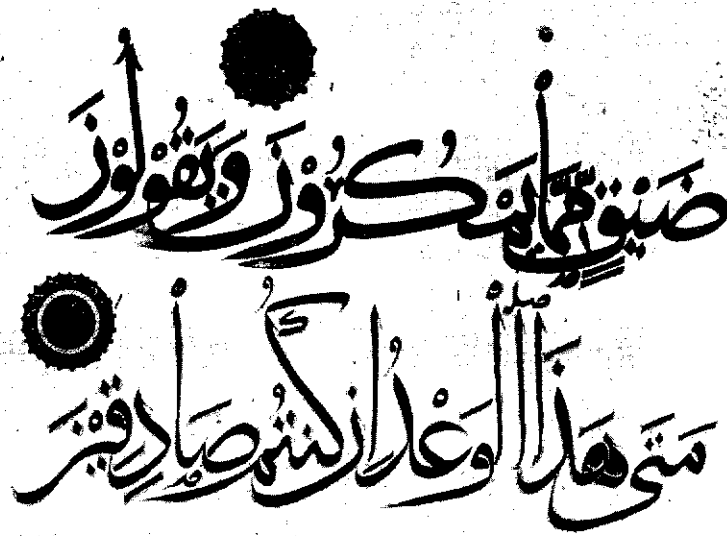 ضَيْقٍ مِّمَّا يَمْكُرُونَ وَيَقُولُونَ
مَتَى هَذَا الْوَعْدُ إِن كُنتُمْ صَادِقِينَ